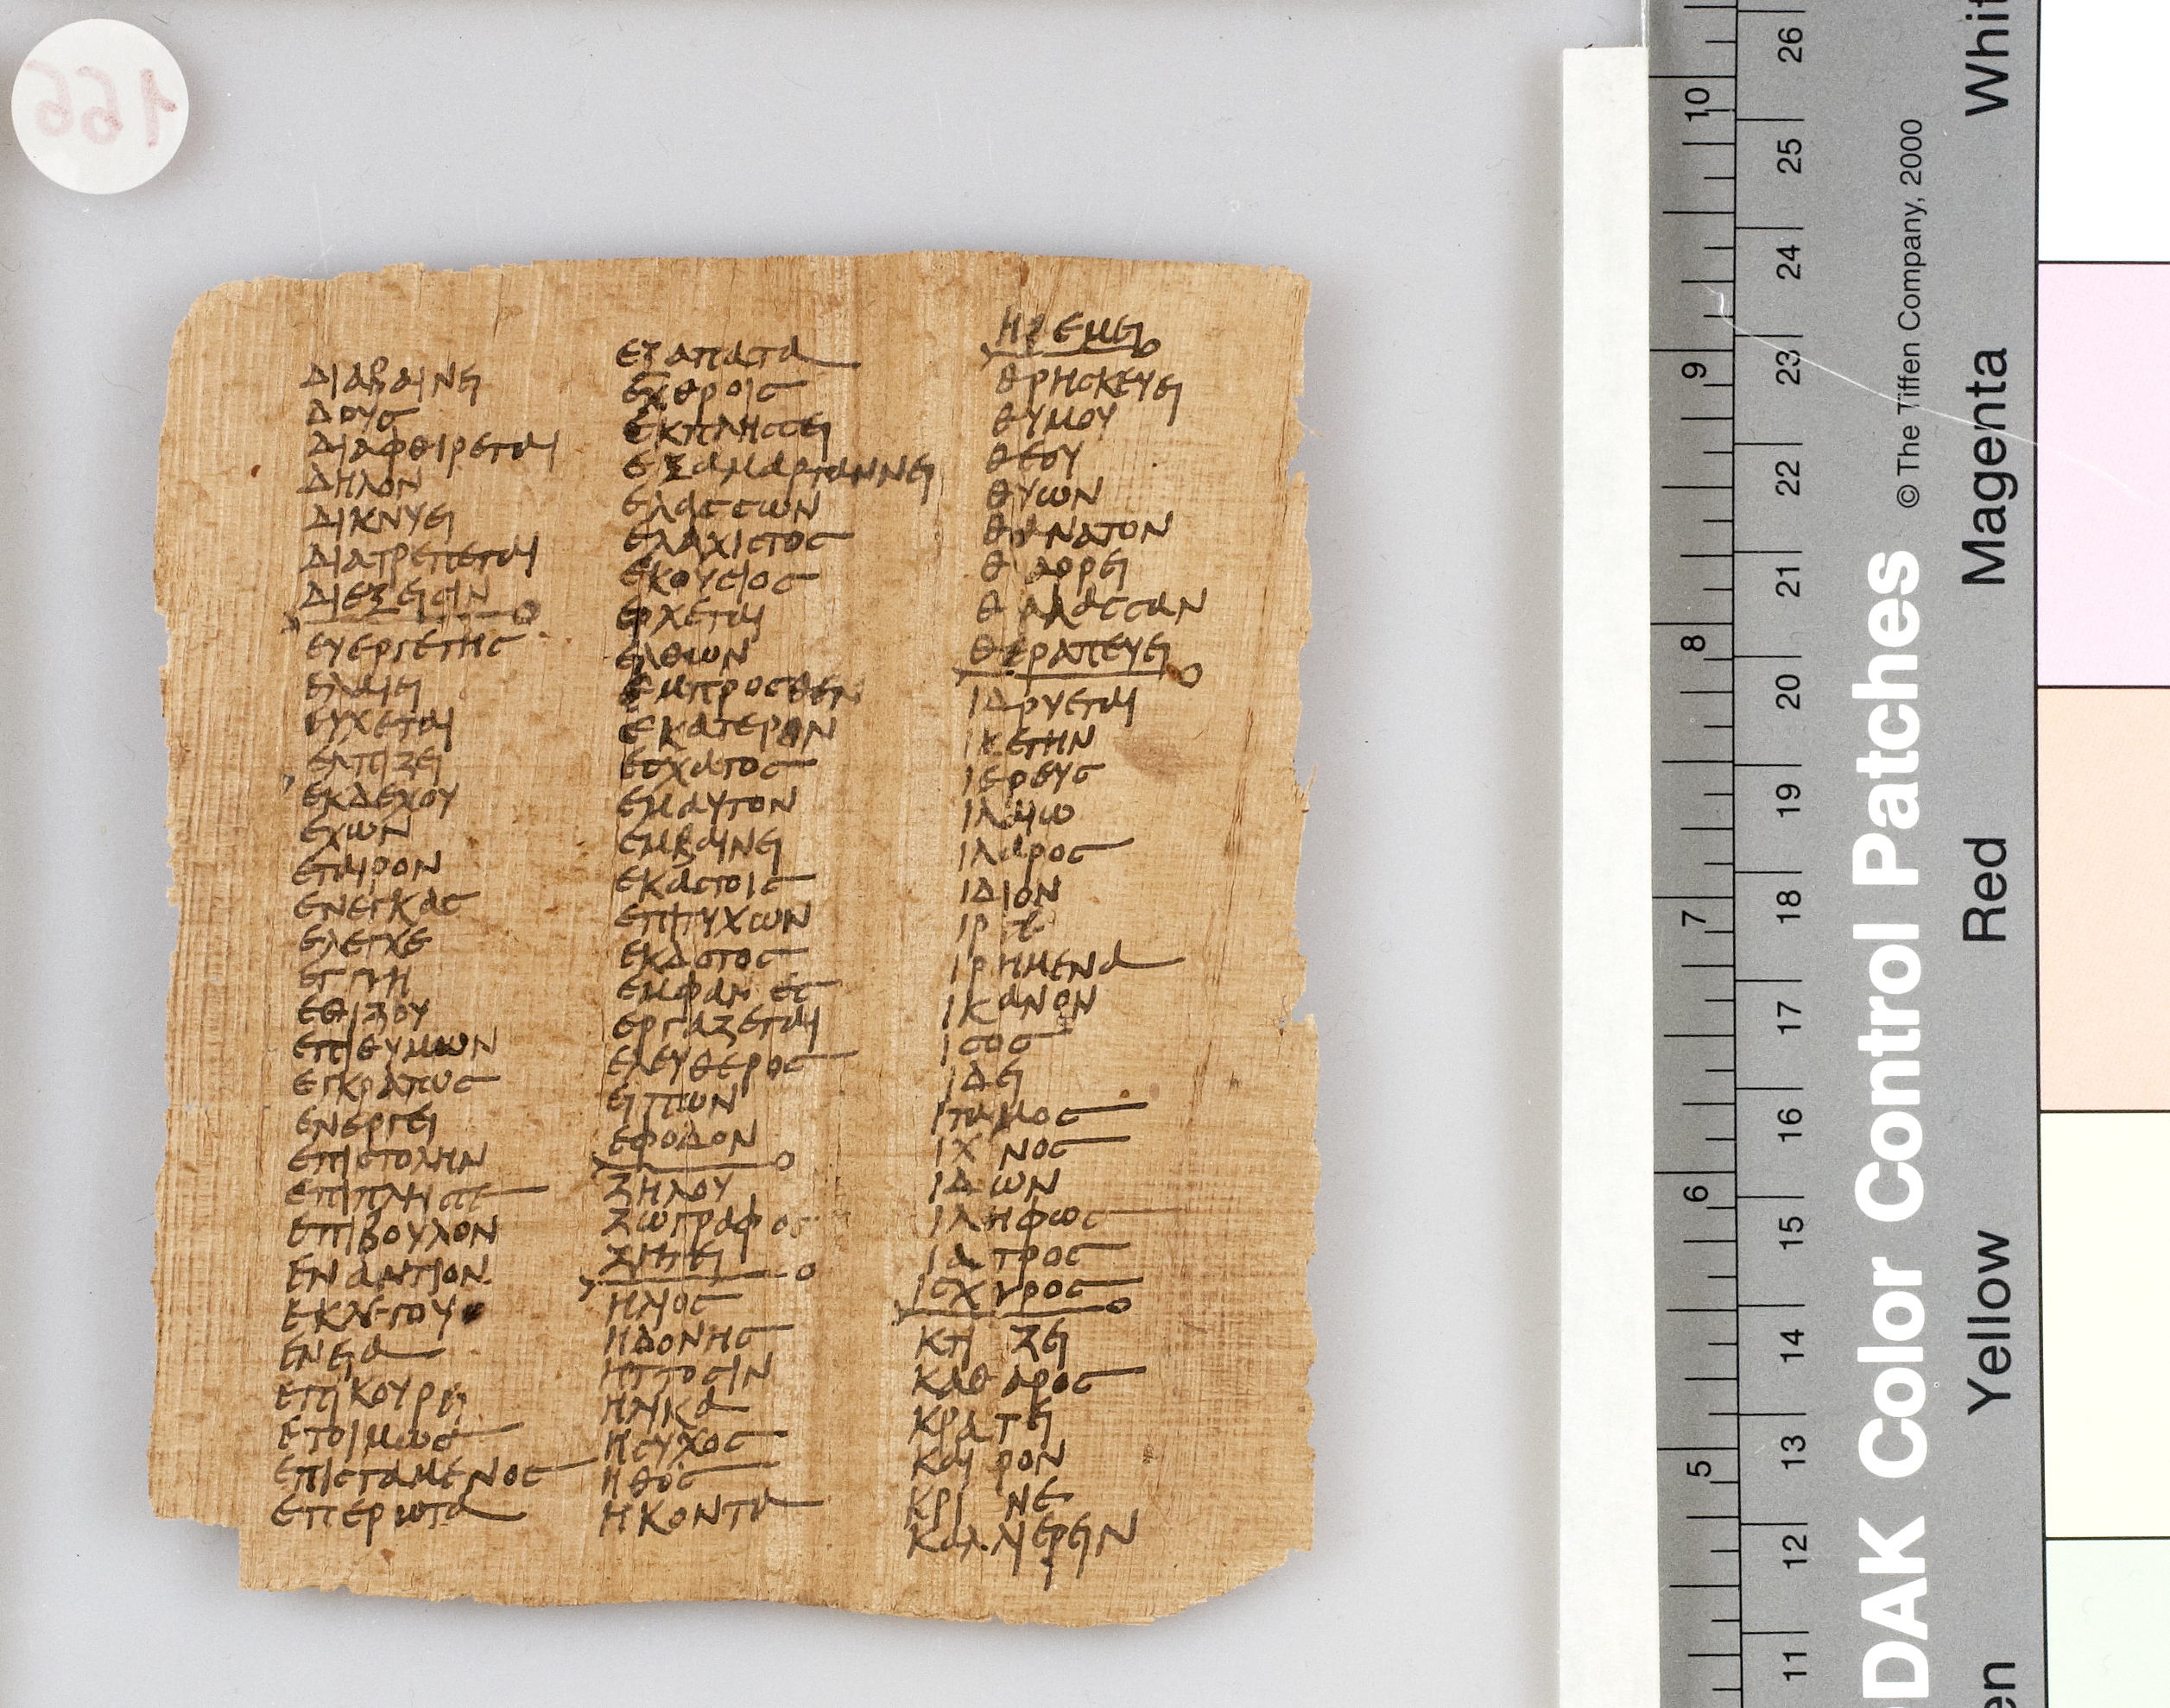 ΔΙΑΒΑΙΝΕΙ
ΔΟΥΣ
ΔΙΑΦΘΙΡΕΤΑΙ
ΔΗΛΟΝ
ΔΙΚΝΥΕΙ
ΔΙΑΤΡΕΠΕΤΑΙ
ΔΙΕΞΕΙΣΙΝ
ΕΥΕΡΓΕΤΗΣ
ΕΛΑΙΕΙ
ΕΥΧΕΤΑΙ
ΕΛΠΙΖΕΙ
ΕΚΔΕΧΟΥ
ΕΧΩΝ
ΕΤΑΙΡΟΝ
ΕΝΕΓΚΑΣ
ΕΛΕΓΧΕ
ΕΘΙΖΟΥ
ΕΠΙΘΥΜΩΝ
ΕΓΚΡΑΤΩΣ
ΕΝΕΡΓΕΙ
ΕΠΙΣΤΟΛΗΝ
ΕΠΙΠΛΗΣΣΕ
ΕΠΙΒΟΥΛΟΝ
ΕΝΑΝΤΙΟΝ
ΕΝΕΙΑ
ΕΠΙΚΟΥΡΕΙ
ΕΤΟΙΜΩΣ
ΕΠΙΣΤΑΜΕΝΟΣ
ΕΠΕΡΩΤΑ
ΕΞΑΠΑΤΑ
ΕΧΘΡΟΙΣ
ΕΚΠΛΗΣΣΕΙ
ΕΞΑΜΑΡΤΑΝΝΕΙ
ΕΛΑΣΣΩΝ
ΕΛΑΧΙΣΤΟΣ
ΕΚΟΥΣΙΟΣ
ΕΡΧΕΤΑΙ
ΕΛΘΩΝ
ΕΜΠΡΟΣΘΕΝ
ΕΚΑΤΕΡΟΝ
ΕΣΧΑΤΟΣ
ΕΜΑΥΤΟΝ
ΕΜΒΑΙΝΕΙ
ΕΚΑΣΤΟΙΣ
ΕΠΙΤΥΧΩΝ
ΕΚΔΟΤΟΣ
ΕΜΦΑΝ ΕΣ
ΕΡΓΑΖΕΤΑΙ
ΕΛΕΥΘΕΡΟΣ
ΕΙΠΩΝ
ΕΦΟΔΟΝ
ΖΗΛΟΥ
ΖΩΓΡΑΦΟΣ
ΖΗΤΕΙ
ΗΛΙΟΣ
ΗΔΟΝΗΣ
ΗΤΤΟΣΙΝ
ΗΝΙΚΑ
ΗΣΥΧΟΣ
ΗΘΟΣ
ΗΚΟΝΤΑ
ΗΡΕΜΕΙ
ΘΡΗΣΚΕΥΕΙ
ΘΥΜΟΥ
ΘΕΟΥ
ΘΥΩΝ
ΘΑΝΑΤΟΝ
ΘΑΡΡΕΙ
ΘΑΛΑΣΣΑΝ
ΘΕΡΑΠΕΥΕΙ
ΙΔΡΥΕΤΑΙ
ΙΚΕΤΗΝ
ΙΕΡΕΥΣ
ΙΛΑΙΩ
ΙΛΑΡΟΣ
ΙΔΙΟΝ
ΙΡΗΜΕΝΑ
ΙΚΑΝΟΝ
ΙΣΟΣ
ΙΔΕΙ
ΙΤΑΜΟΣ
ΙΧΝΟΣ
ΙΔΩΝ
ΙΛΗΦΩΣ
ΙΑΤΡΟΣ
ΙΣΧΥΡΟΣ
ΚΤΙΖΕΙ
ΚΑΘΑΡΟΣ
ΚΡΑΤΕΙ
ΚΑΙΡΟΝ
ΚΡΙΝΕ
ΚΑΛΛΙΕΡΕΙΝ
166
© The Tiffen Company, 2000
DAK Color Control Patches
Whit
Magenta
Red
Yellow
en
10 9 8 7 6 5
26 25 24 23 22 21 20 19 18 17 16 15 14 13 12 11